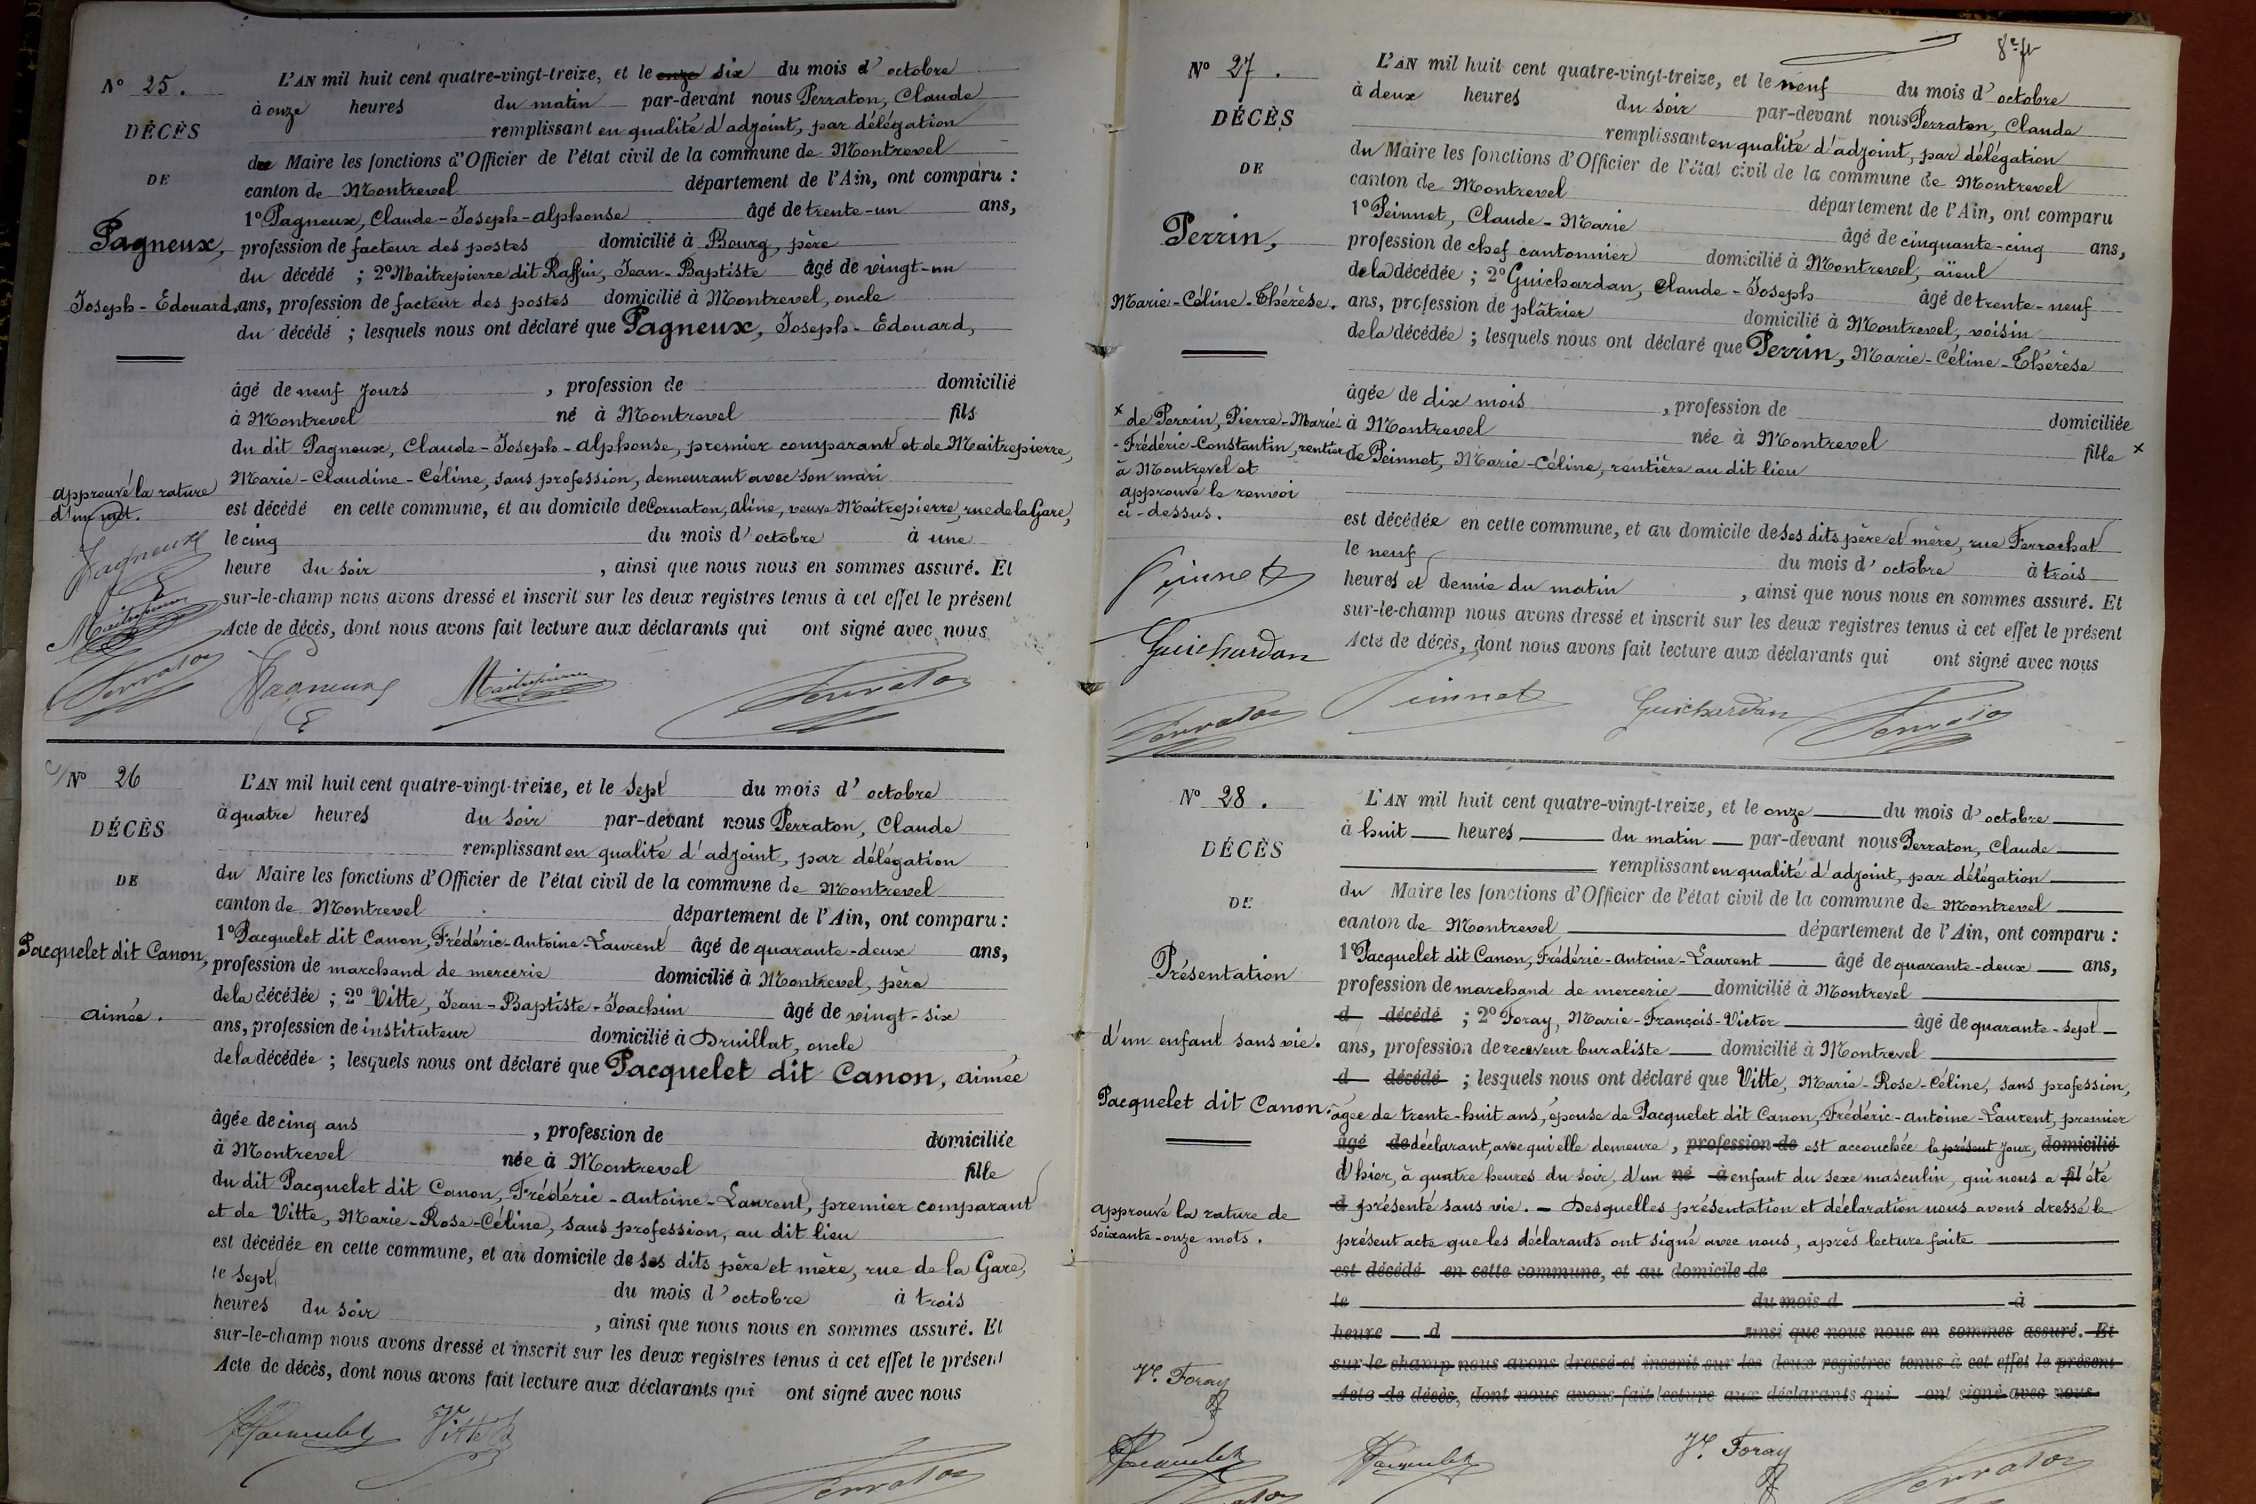 Nº 25.
DÉCÈS
DE
Pagneux,
Joseph-Edouard,
approuvé la rature
d'un mot.
Pagneux
Maitrepierre
Perraton
L'AN mil huit cent quatre-vingt-treize, et le onze six du mois d'octobre
à onze heures du matin par-devant nous Perraton, Claude
remplissant en qualité d'adjoint, par délégation
du Maire les fonctions d'Officier de l'état civil de la commune de Montrevel
canton de Montrevel département de l'Ain, ont comparu :
1º Pagneux, Claude-Joseph-alphonse âgé de trente-un ans,
profession de facteur des postes domicilié à Bourg, père
du décédé ; 2º Maitrepierre dit Raffin, Jean-Baptiste âgé de vingt-un
ans, profession de facteur des postes domicilié à Montrevel, oncle
du décédé ; lesquels nous ont déclaré que Pagneux, Joseph-Edouard,
âgé de neuf jours , profession de domicilié
à Montrevel né à Montrevel fils
du dit Pagneux, Claude-Joseph-alphonse, premier comparant et de Maitrepierre,
Marie-Claudine-Céline, sans profession, demeurant avec son mari
est décédé en cette commune, et au domicile de Cornaton, aline, veuve Maitrepierre, rue de la Gare,
le cinq du mois d'octobre à une
heure du soir , ainsi que nous nous en sommes assuré. Et
sur-le-champ nous avons dressé et inscrit sur les deux registres tenus à cet effet le présent
Acte de décès, dont nous avons fait lecture aux déclarants qui ont signé avec nous
Pagneux Maitrepierre Perraton
Nº 26
DÉCÈS
DE
Pacquelet dit Canon,
aimée.
L'AN mil huit cent quatre-vingt-treize, et le sept du mois d'octobre
à quatre heures du soir par-devant nous Perraton, Claude
remplissant en qualité d'adjoint, par délégation
du Maire les fonctions d'Officier de l'état civil de la commune de Montrevel
canton de Montrevel département de l'Ain, ont comparu :
1º Pacquelet dit Canon, Frédéric-antoine-Laurent âgé de quarante-deux ans,
profession de marchand de mercerie domicilié à Montrevel, père
de la décédée ; 2º Vitte, Jean-Baptiste-Joachim âgé de vingt-six
ans, profession de instituteur domicilié à Druillat, oncle
de la décédée ; lesquels nous ont déclaré que Pacquelet dit Canon, aimée
âgée de cinq ans , profession de domiciliée
à Montrevel née à Montrevel fille
du dit Pacquelet dit Canon, Frédéric-antoine-Laurent, premier comparant
et de Vitte, Marie-Rose-Céline, sans profession, au dit lieu
est décédée en cette commune, et au domicile de ses dits père et mère, rue de la Gare,
le sept du mois d'octobre à trois
heures du soir , ainsi que nous nous en sommes assuré. Et
sur-le-champ nous avons dressé et inscrit sur les deux registres tenus à cet effet le présent
Acte de décès, dont nous avons fait lecture aux déclarants qui ont signé avec nous
Pacquelet Vitte
Perraton
Nº 27.
DÉCÈS
DE
Perrin,
Marie-Céline-Thérèse.
x de Perrin, Pierre-Marie
-Frédéric-Constantin, rentier
à Montrevel et
approuvé le renvoi
ci-dessus.
Peinnet
Guichardan
Perraton
L'AN mil huit cent quatre-vingt-treize, et le neuf du mois d'octobre
à deux heures du soir par-devant nous Perraton, Claude
remplissant en qualité d'adjoint, par délégation
du Maire les fonctions d'Officier de l'état civil de la commune de Montrevel
canton de Montrevel département de l'Ain, ont comparu
1º Peinnet, Claude-Marie âgé de cinquante-cinq ans,
profession de chef cantonnier domicilié à Montrevel, aïeul
de la décédée ; 2º Guichardan, Claude-Joseph âgé de trente-neuf
ans, profession de plâtrier domicilié à Montrevel, voisin
de la décédée ; lesquels nous ont déclaré que Perrin, Marie-Céline-Thérèse
âgée de dix mois , profession de domiciliée
à Montrevel née à Montrevel fille x
de Peinnet, Marie-Céline, rentière au dit lieu
est décédée en cette commune, et au domicile de ses dits père et mère, rue Ferrachat
le neuf du mois d'octobre à trois
heures et demie du matin , ainsi que nous nous en sommes assuré. Et
sur-le-champ nous avons dressé et inscrit sur les deux registres tenus à cet effet le présent
Acte de décès, dont nous avons fait lecture aux déclarants qui ont signé avec nous
Peinnet Guichardan Perraton
Nº 28.
DÉCÈS
DE
Présentation
d'un enfant sans vie.
Pacquelet dit Canon.
approuvé la rature de
soixante-onze mots.
Vr. Foray
Pacquelet
L'AN mil huit cent quatre-vingt-treize, et le onze du mois d'octobre
à huit heures du matin par-devant nous Perraton, Claude
remplissant en qualité d'adjoint, par délégation
du Maire les fonctions d'Officier de l'état civil de la commune de Montrevel
canton de Montrevel département de l'Ain, ont comparu :
1º Pacquelet dit Canon, Frédéric-antoine-Laurent âgé de quarante-deux ans,
profession de marchand de mercerie domicilié à Montrevel
d décédé ; 2º Foray, Marie-François-Victor âgé de quarante-sept
ans, profession de receveur buraliste domicilié à Montrevel
d décédé ; lesquels nous ont déclaré que Vitte, Marie-Rose-Céline, sans profession,
âgée de trente-huit ans, épouse de Pacquelet dit Canon, Frédéric-antoine-Laurent, premier
âgé de déclarant, avec qui elle demeure, profession de est accouchée le présent jour, domicilié
d'hier, à quatre heures du soir, d'un né à enfant du sexe masculin, qui nous a fil été
d présenté sans vie. - Desquelles présentation et déclaration nous avons dressé le
présent acte que les déclarants ont signé avec nous, après lecture faite
est décédé en cette commune, et au domicile de
le du mois d à
heure d ainsi que nous nous en sommes assuré. Et
sur-le-champ nous avons dressé et inscrit sur les deux registres tenus à cet effet le présent
Acte de décès, dont nous avons fait lecture aux déclarants qui ont signé avec nous
Pacquelet Vr. Foray Perraton